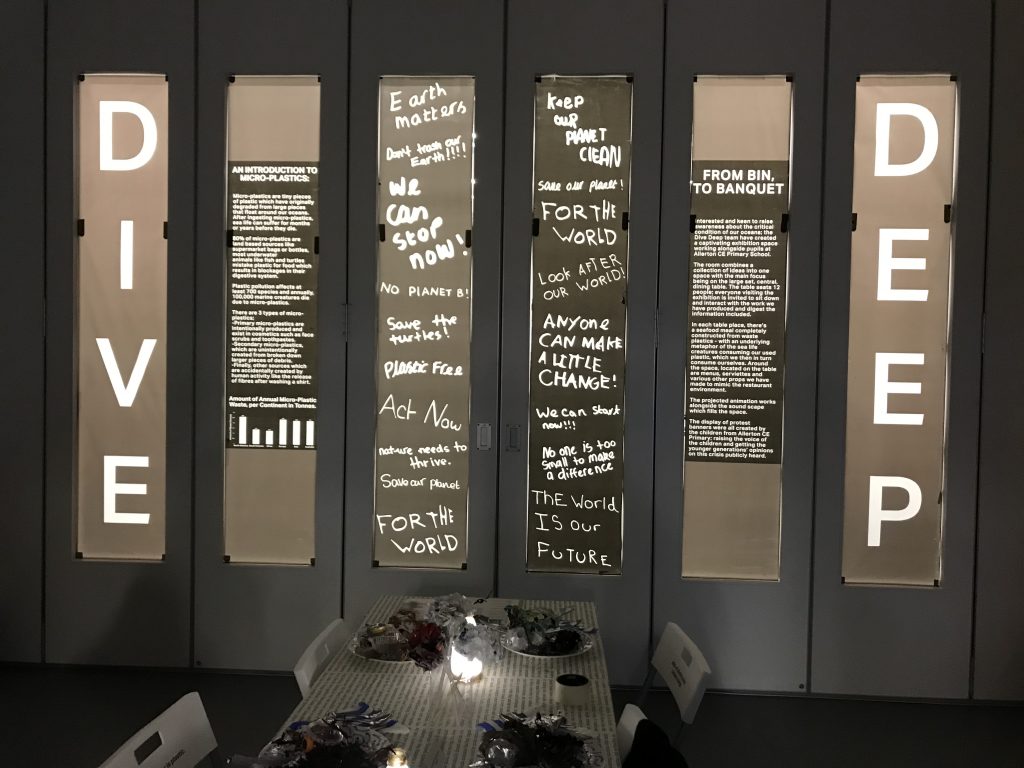 D
I
V
E
AN INTRODUCTION TO
MICRO-PLASTICS:
Micro-plastics are tiny pieces
of plastic which have originally
degraded from large pieces
that float around our oceans.
After ingesting micro-plastics,
sea life can suffer for months
or years before they die.
of micro-plastics are
land based sources like
supermarket bags or bottles,
most underwater
animals like fish and turtles
mistake plastic for food which
results in blockages in their
digestive system.
Plastic pollution effects at
least 700 species and annually,
100,000 marine creatures die
due to micro-plastics.
There are 3 types of micro-
plastics:
-Primary micro-plastics are
intentionally produced and
exist in cosmetics such as face
scrubs and toothpastes.
-Secondary micro-plastics,
which are unintentionally
created from broken down
larger pieces of debris.
-Finally, other sources which
are accidentally created by
human activity like the release
of fibres after washing a shirt.
Amount of Annual Micro-Plastic
Waste, per Continent in Tonnes.
Earth
matters
Don't trash our
Earth!!!!
We
can
stop
now!
NO PLANET B!
Save the
turtles!
Plastic Free
Act Now
nature needs to
thrive.
Save our planet
FOR THE
WORLD
KEEP
OUR
PLANET
CLEAN
Save our planet!
FOR THE
WORLD
Look AFTER
OUR WORLD!
ANYONE
CAN MAKE
A LITTLE
CHANGE!
We can start
now!!!
No one is too
small to make
a difference
The World
IS our
FUTURE
FROM BIN,
TO BANQUET
Interested and keen to raise
awareness about the critical
condition of our oceans; the
Dive Deep team have created
a captivating exhibition space
working alongside pupils at
Allerton CE Primary School.
The room combines a
collection of ideas into one
space with the main focus
being on the large set, central
dining table. The table seats 12
people; everyone visiting the
exhibition is invited to sit down
and interact with the work we
have produced and digest the
information included.
In each table place, there's
a seafood meal completely
constructed from waste
plastics - with an underlying
metaphor of the sea life
creatures consuming our used
plastic, which we then in turn
consume ourselves. Around
the space, located on the table
are menus, serviettes and
various other props we have
made to mimic the restaurant
environment.
The projected animation works
alongside the sound scape
which fills the space.
The display of protest
banners were all created by
the children from Allerton CE
Primary; raising the voice of
the children and getting the
younger generations' opinions
on this crisis publicly heard.
D
E
E
P